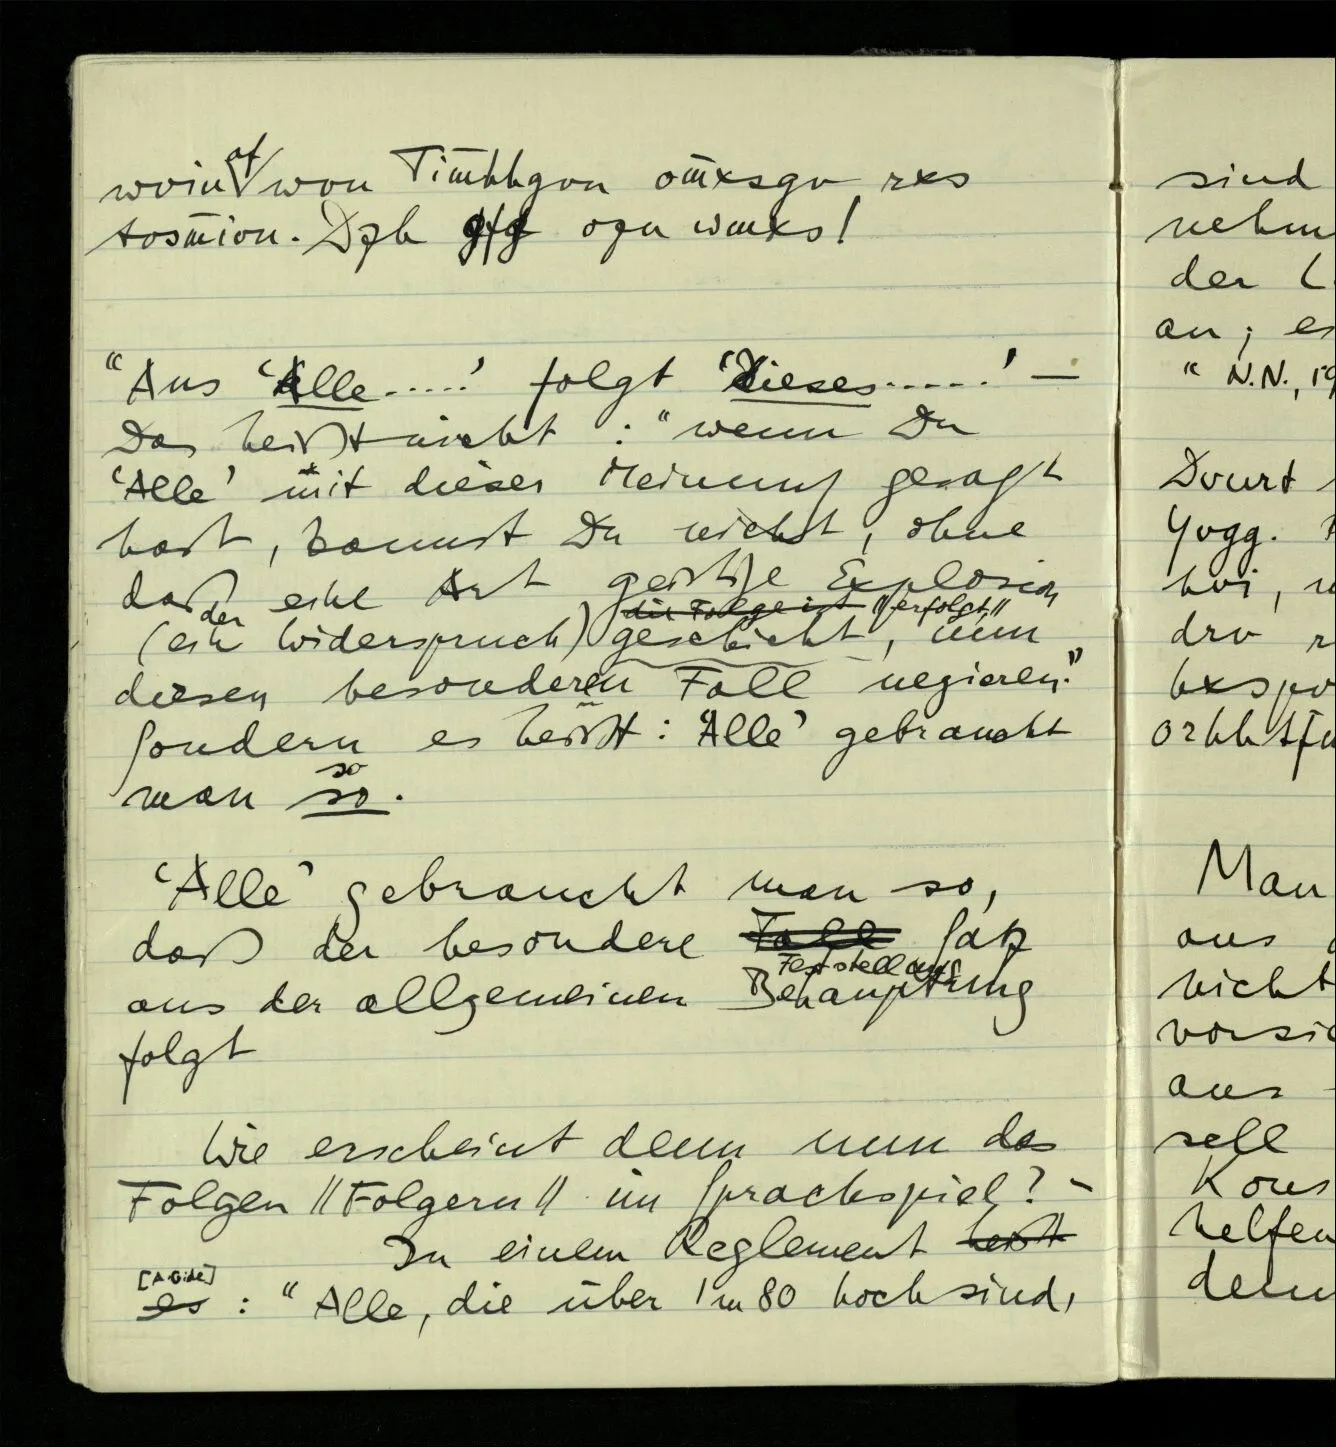 wvin of wvn Timhhgvn omxsgv rxs
tosmion. Dzh gfg ozn wmxs!
"Aus 'Alle.....' folgt 'Dieses.....' —
Das heißt nicht: "wenn Du
'Alle' mit dieser Meinung gesagt
hast, kannst Du nicht, ohne
daß eine Art geistige Explosion
die Folge ist //erfolgt//
der
(ein Widerspruch) geschieht, nun
diesen besonderen Fall negieren."
Sondern es heißt: 'Alle' gebraucht
so
man so.
'Alle' gebraucht man so,
daß der besondere Fall Satz
Feststellung
aus der allgemeinen Behauptung
folgt
Wie erscheint denn nun das
Folgen //Folgern// im Sprachspiel? –
In einem Reglement heißt
es: "Alle, die über 1m80 hoch sind,
sind
nehm
der L
an; es
" N.N., 19
Yvgg.
hvi,
drv
Man
aus
nicht
vorsic
aus
sell
Kons
helfen
denn